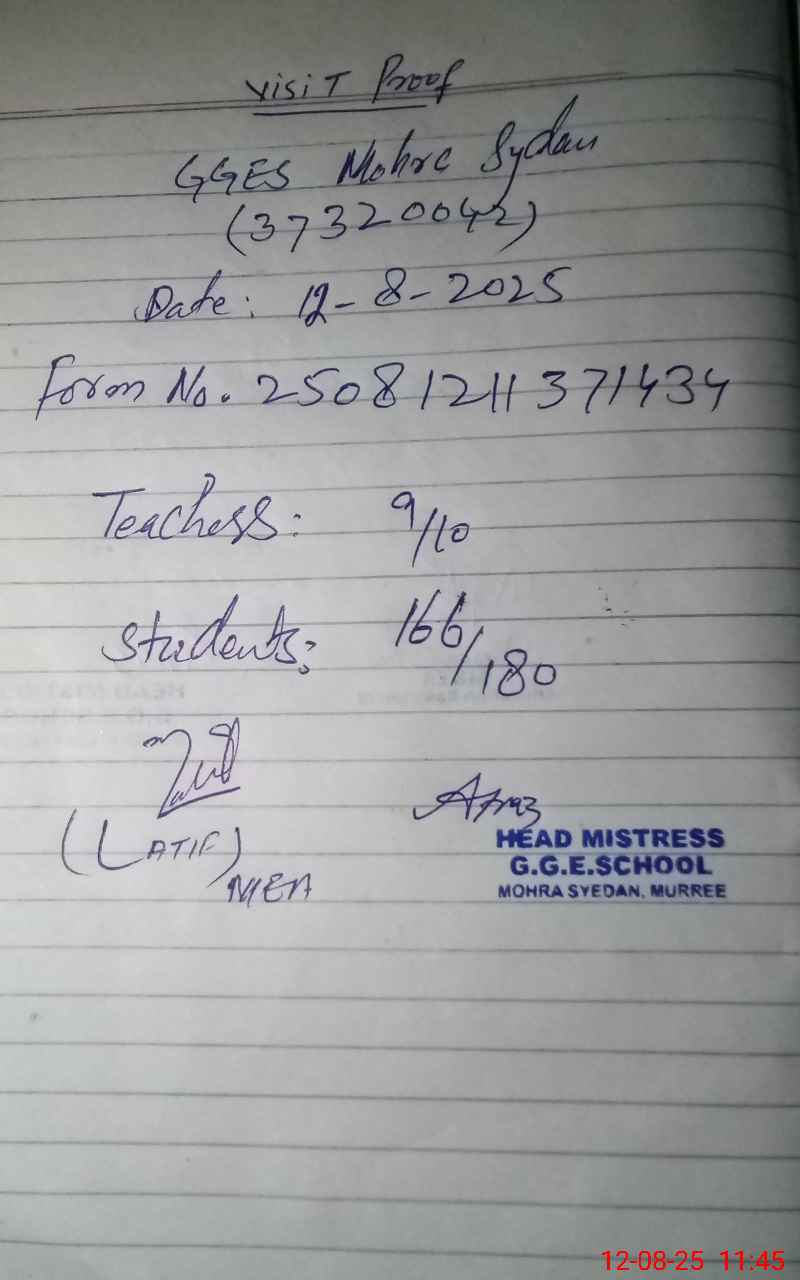 Visit Proof
GGES Mohra Sydan
(37320042)
Date: 12-8-2025
Form No. 25081211371434
Teachers: 9/10
Students: 166/180
(LATIF)
MEA
HEAD MISTRESS
G.G.E.SCHOOL
MOHRA SYEDAN, MURREE
12-08-25 11:45